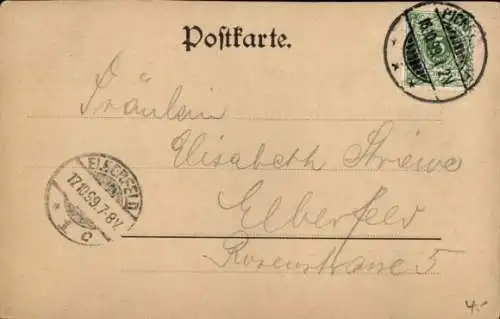 Postkarte.
Fräulein
Elisabeth
Elberfeld
Rosenstrasse 5
ELBERFELD
17.10.99.7-8V.
1 c
4.-